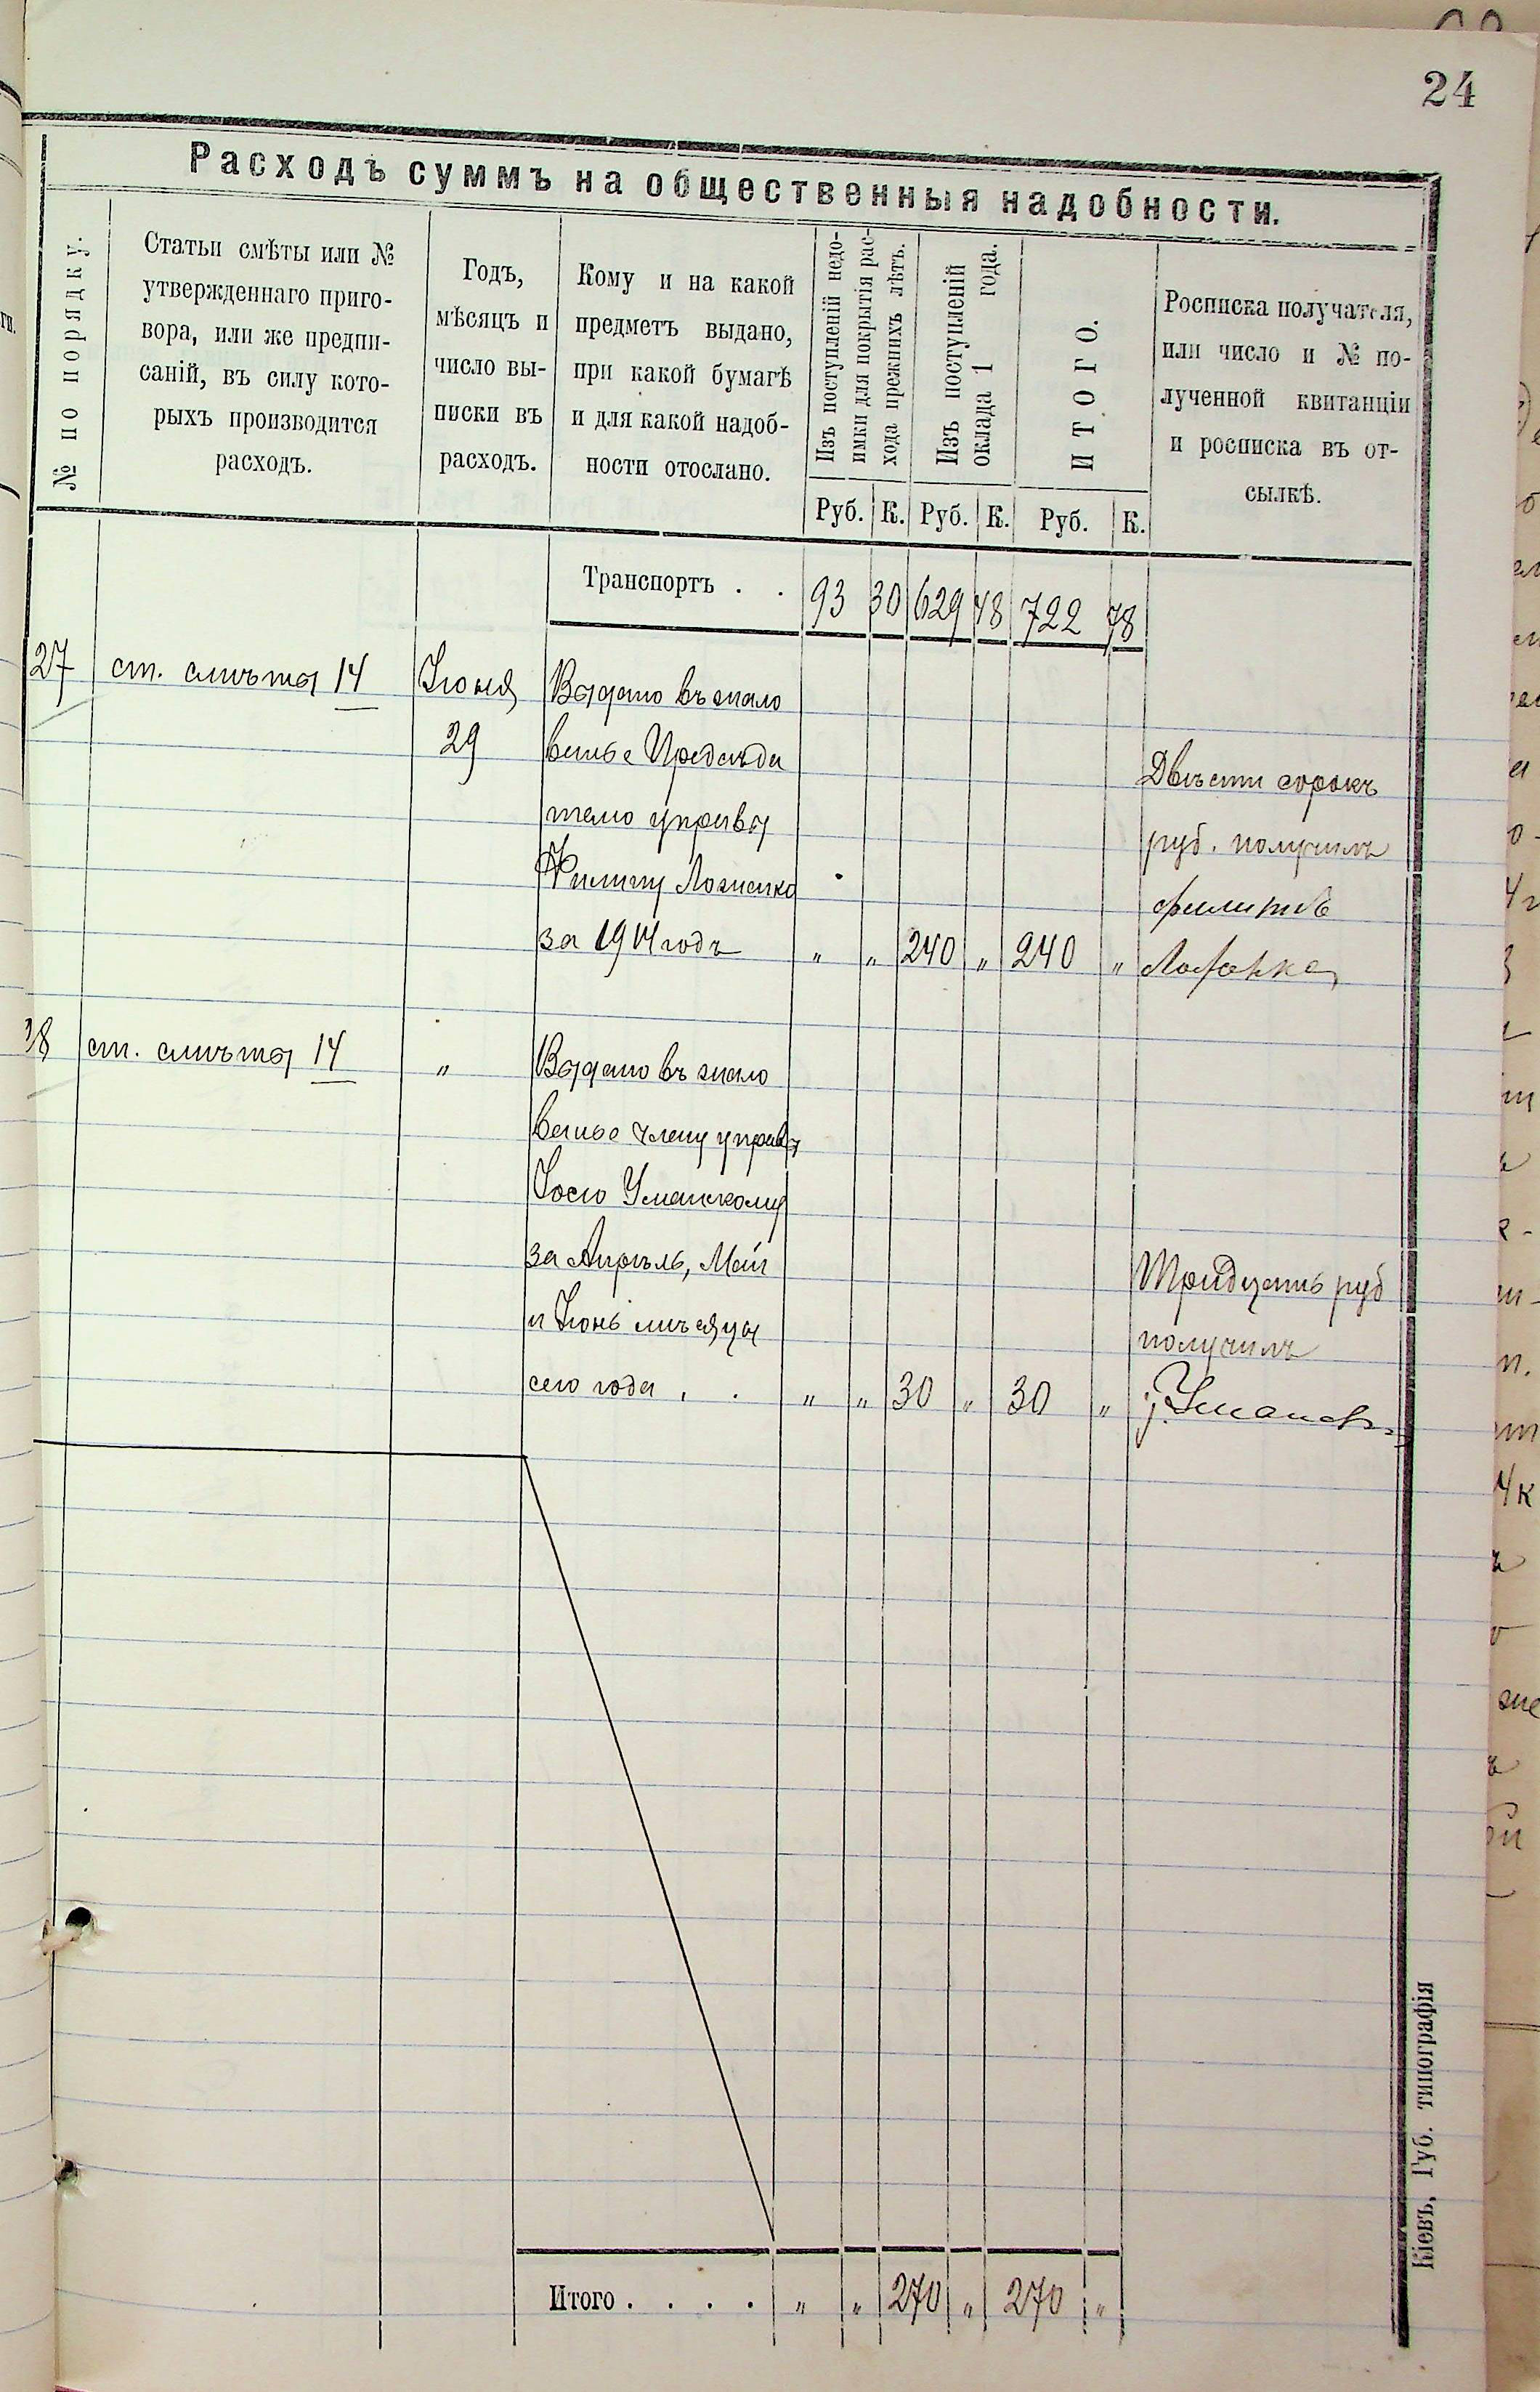 24
Расходъ суммъ на общественныя надобности.
№ по порядку.
Статьи смѣты или №
утвержденнаго приго-
вора, или же предпи-
саній, въ силу кото-
рыхъ производится
расходъ.
Годъ,
мѣсяцъ и
число вы-
писки въ
расходъ.
Кому и на какой
предметъ выдано,
при какой бумагѣ
и для какой надоб-
ности отослано.
Изъ поступленій недо-
имки для покрытія рас-
хода прежнихъ лѣтъ.
Изъ поступленій
оклада 1 года.
ИТОГО.
Росписка получателя,
или число и № по-
лученной квитанціи
и росписка въ от-
сылкѣ.
Руб. К. Руб. К. Руб. К.
Транспортъ . . 93 30 629 48 722 78
27 ст. смѣты 14 Іюня Выдано въ жало
29 ванье Предсѣда
телю управы
Филипу
за 1914 годъ „ „ 240 „ 240 „
Двѣсти сорокъ
руб. получилъ
филипъ
8 ст. смѣты 14 „ Выдано въ жало
ванье члену управы
Уманскому
за Апрѣль, Май
и Іюнь мѣсяцы
сего года . . „ „ 30 „ 30 „
Тридцать руб
получилъ
Итого . . . . „ „ 270 „ 270 „
Кіевъ, Губ. типографія